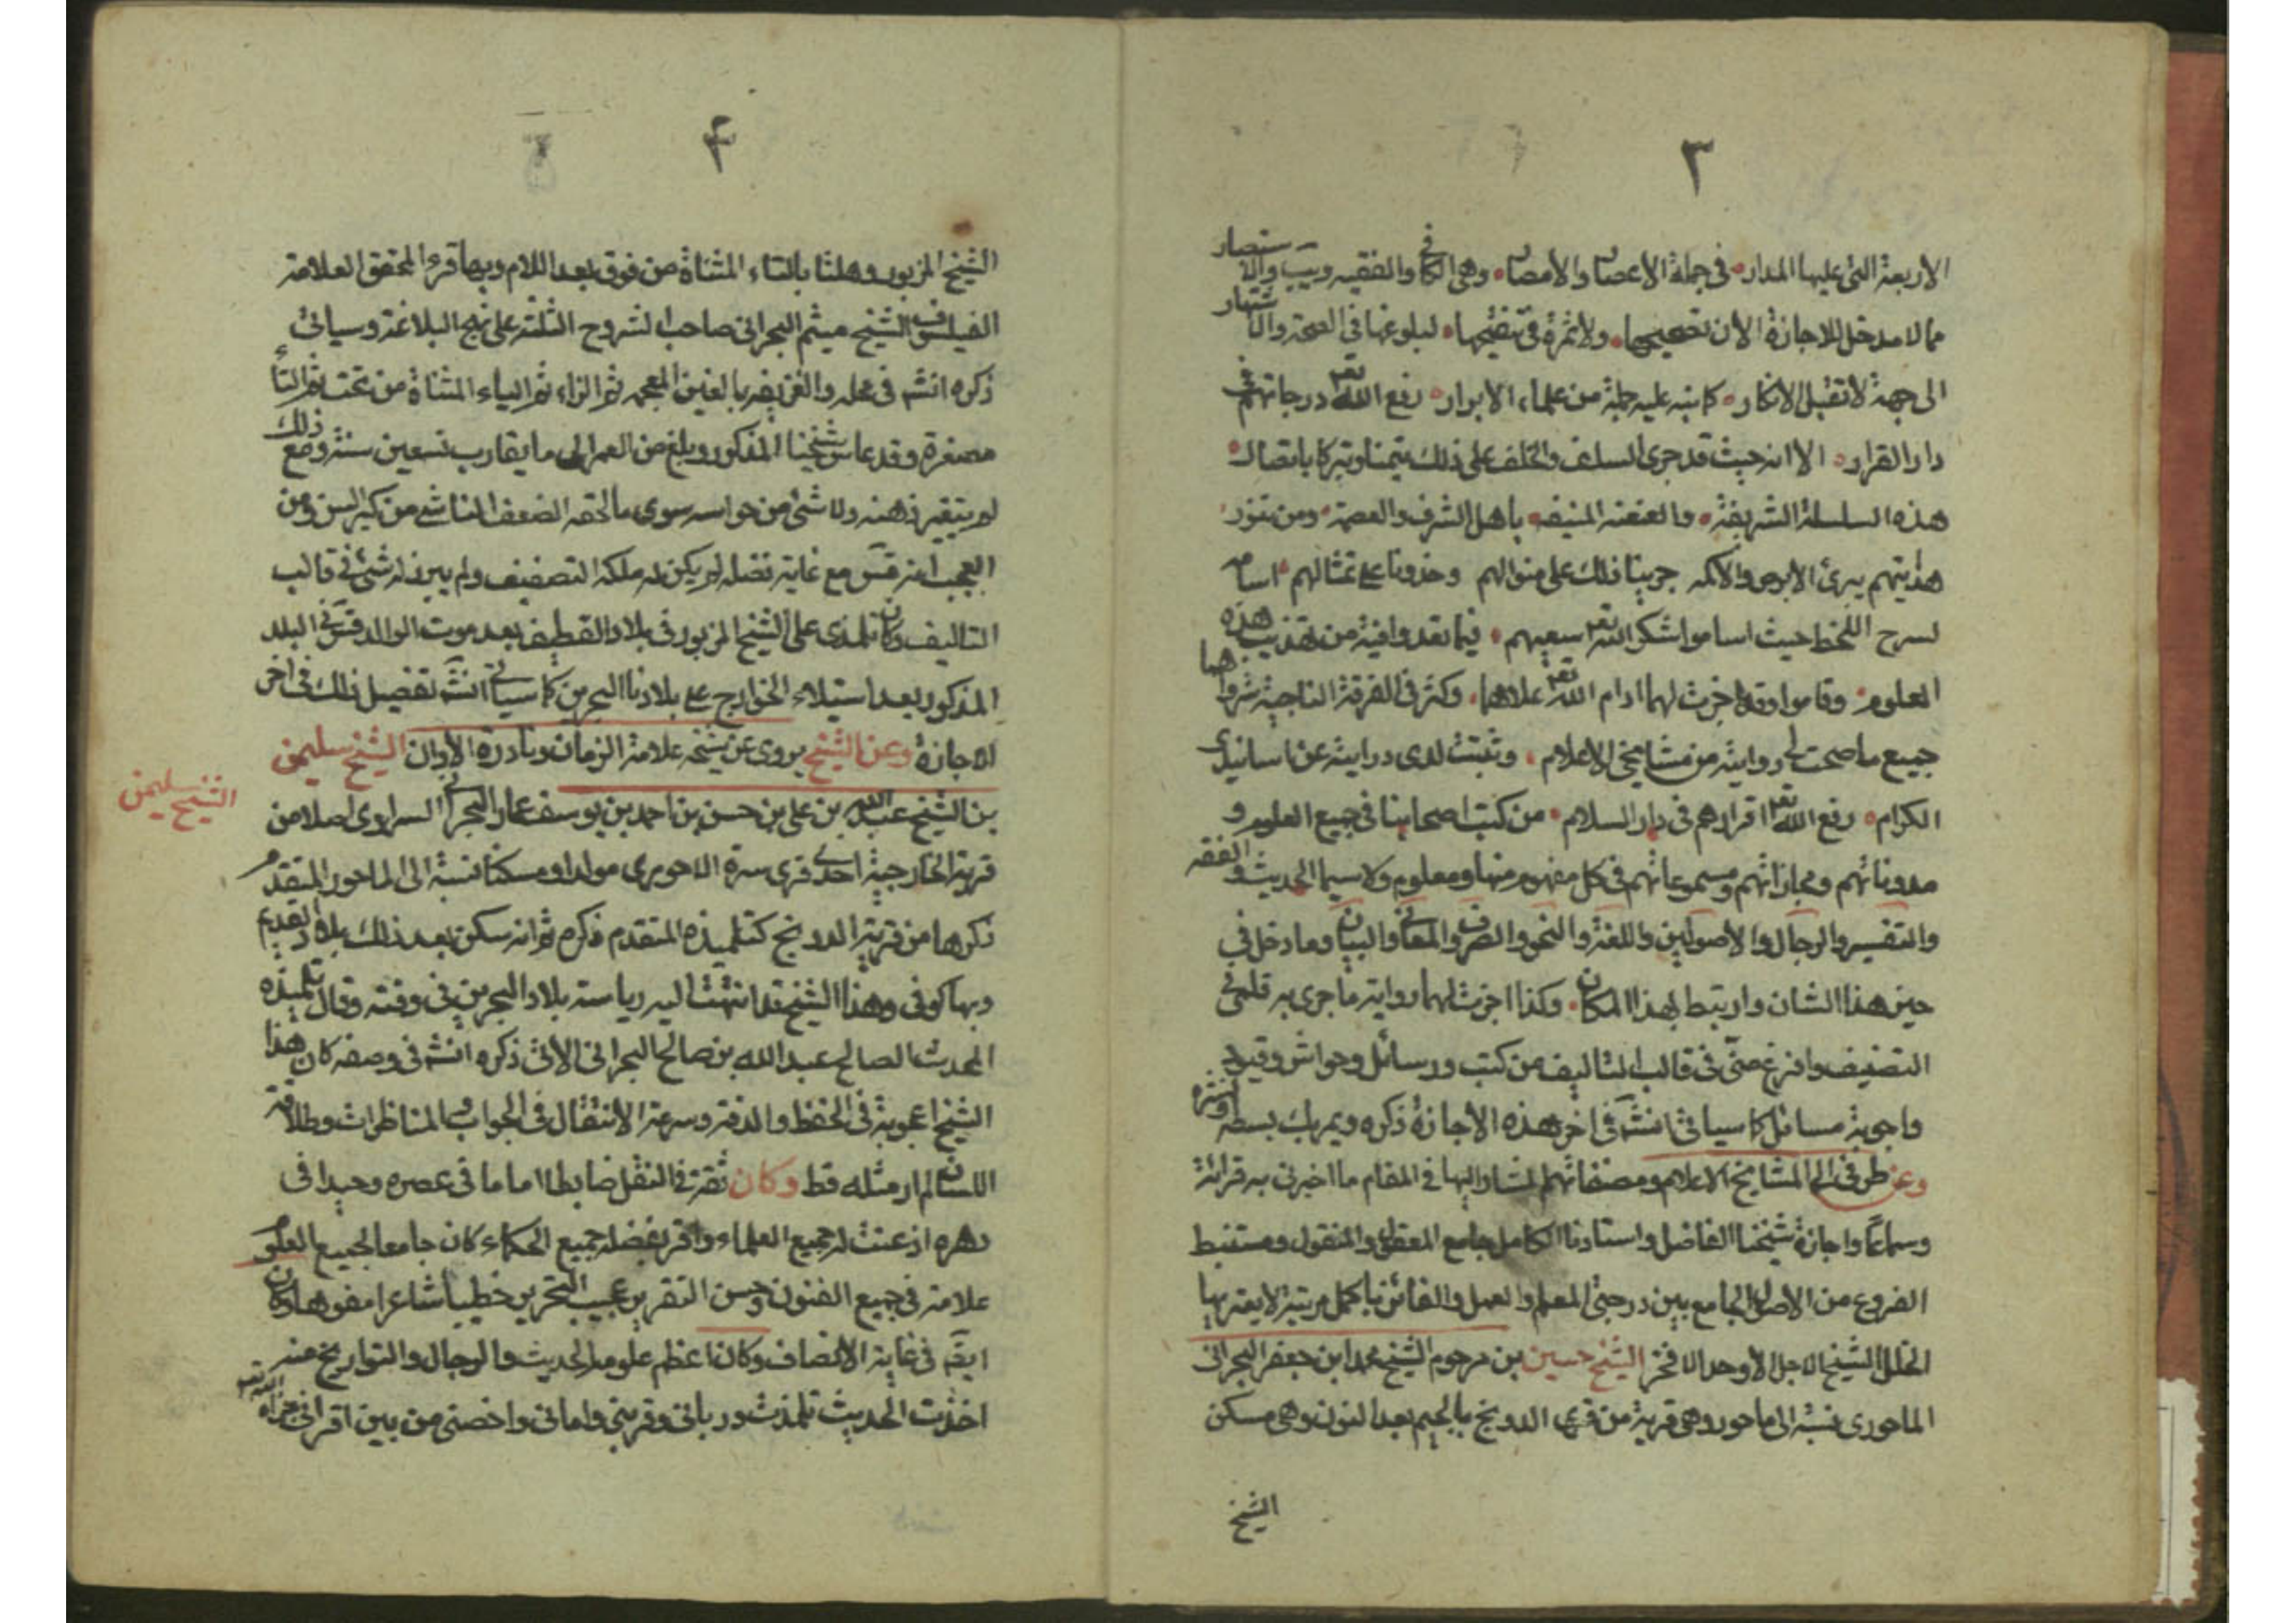 ٣
الاربعة التى عليها المدار في جملة الاعصار والامصار وهى الكافي والفقيه ويب والاستبصار
مما لا مدخل للاجازة الان تصحيحها ولا ثمرة فى تنقيحها لبلوغها فى الصحة والاشتهار
الى جهة لا تقبل الانكار كما نبه عليه جملة من علماء الابرار رفع الله تع درجاتهم في
دار القرار الا انه حيث قد جرى السلف والخلف على ذلك تيمنا وتبركا باتصال
هذه السلسلة الشريفة والعنعنة المنيفه باهل الشرف والعصمة ومن بنور
هدايتهم يبرئ الابرص والاكمه جرينا فلك على منوالهم وحذونا على تمثالهم اسام
لسرح اللحظ حيث اساموا شكر الله تع سعيهم فيما تعد وافية من تهذيب هذه
العلوم وقاموا وقد اجزت لهما ادام الله تع علاهما وكثر فى الفرقة الناجية شرواهما
جميع ما صحت لى روايته من مشايخى الاعلام وثبتت لدى درايته عن اساتيدى
الكرام رفع الله تع اقرارهم فى دار السلام من كتب اصحابنا فى جميع العلوم و
مدوناتهم ومجازاتهم ومسموعاتهم فى كل مفهوم منها ومعلوم ولا سيما الحديث والفقه
والتفسير والرجال والاصولين واللغة والنحو والصرف والمعاني والبيان وما دخل في
حيز هذا الشان وارتبط بهذا المكان وكذا اجزت لهما رواية ما جرى به قلمى في
التصنيف وافرغ منى فى قالب التاليف من كتب ورسائل وحواش وقيود
واجوبة مسائل كما سياتى انشـ فى اخر هذه الاجازة ذكره ويمر بك بسطه ونشره
وعن طرقى الى المشايخ الاعلام ومصنفاتهم المشار اليها في المقام ما اخبرنى به قرائة
وسماعا واجازة شيخنا الفاضل واستادنا الكامل جامع المعقول والمنقول ومستنبط
الفروع من الاصول الجامع بين درجتى العلم والعمل والفائز باكمل مرتبة لا يعتريها
الخلل الشيخ الاجل الاوحد الافخر الشيخ حسين بن مرحوم الشيخ محمد ابن جعفر البحرانى
الماحوزى نسبة الى ماحوز وهى قرية من قرى الدونج بالجيم بعد النون وهى مسكن
الشيخ
۴
الشيخ المزبور وهلتا بالتاء المثناة من فوق بعد اللام وبها قبر المحقق العلامة
الفيلسوف الشيخ ميثم البحرانى صاحب الشروح الثلثة على نهج البلاغة وسياتى
ذكره انشـ فى محله والغريفه بالغين المعجمه ثم الراء ثم الياء المثناة من تحت ثم الفاء
مصغرة وقد عاش شيخنا المذكور وبلغ من العمر الى ما يقارب تسعين سنة ومع ذلك
لم يتغير ذهنه ولا شئ من حواسه سوى ما لحقه الضعف الناشى من كبر السن ومن
العجب انه قس مع غاية فضله لم يكن له ملكة التصنيف ولم يبرز له شئ في قالب
التاليف وكان تلمذى على الشيخ المزبور فى بلاد القطيف بعد موت الوالد قس في البلد
المذكور بعد استيلاء الخوارج على بلادنا البحرين كما سياتى انشـ تفصيل ذلك فى اخر
الاجازة وعن الشيخ يروى عن شيخه علامة الزمان ونادرة الاوان الشيخ سليمن
الشيخ سليمن
بن الشيخ عبد الله بن على بن حسن بن احمد بن يوسف عمار البحراني السراوى اصلا من
قرية الخارجية احدى قرى سترة الماحوزى مولدا ومسكنا نسبة الى الماحوز المتقدم
ذكرها من قرية الدونج كتلميذه المتقدم ذكره ثم انه سكن بعد ذلك بلاد القديم
وبها توفى وهذا الشيخ قد انتهت اليه رياسة بلاد البحرين فى وقته وقال تلميذه
المحدث الصالح عبد الله بن صالح البحرانى الاتى ذكره انشـ فى وصفه كان هذا
الشيخ اعجوبة فى الحفظ والدقة وسرعة الانتقال فى الجواب والمناظرات وطلاقة
اللسان لم ار مثله قط وكان ثقة في النقل ضابطا اماما فى عصره وحيدا فى
دهره اذعنت له جميع العلماء واقر بفضله جميع الحكماء كان جامعا لجميع العلوم
علامة فى جميع الفنون حسن التقرير عجيب التحرير خطيبا شاعرا مفوها وكان
ايضا فى غاية الانصاف وكان اعظم علومه الحديث والرجال والتواريخ منه
اخذت الحديث وتلمذت ورباني وقربنى واوانى واختصنى من بين اقرانى جزاه الله تع